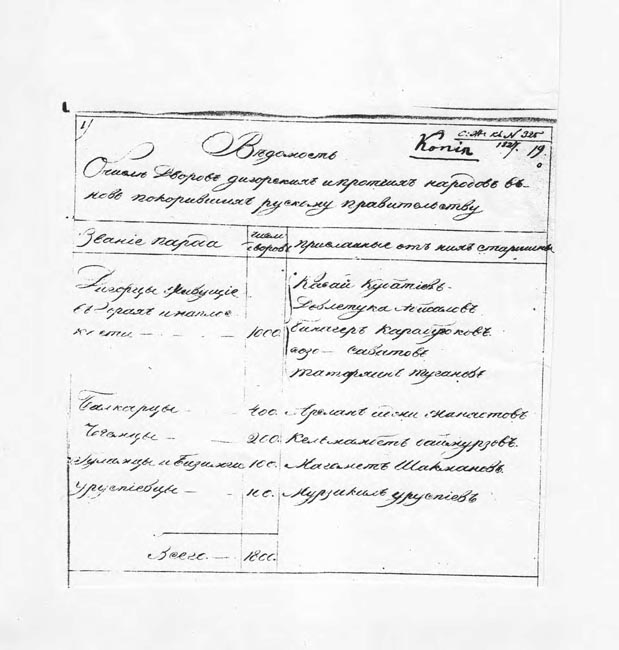 1/
С. М. Кл. N 325
Копія
1827. 19.
Ведомость
О числѣ Дворовъ дигорскихъ и протчихъ народовъ въ-
новь покорившихся рускому правительству
Званіе народа
число дворовъ
присланные отъ нихъ старшины
Дигорцы живущіе
въ горахъ и на плос
кости - - - 1000.
Кавай Кубатіевъ
Девлетука Абисаловъ
Бинагеръ Карабуговъ
- Кабановъ
Татарханъ Тугановъ
Балкарцы - - 400. Арсланъ Жанхотовъ
Чегемцы - - 200. Келмамбетъ Баймурзовъ
Хуламцы и Безинги 100. Магометъ Шакмановъ
Уруспіевцы - - 100. Мурзакулъ Уруспіевъ
Всего - 1800.